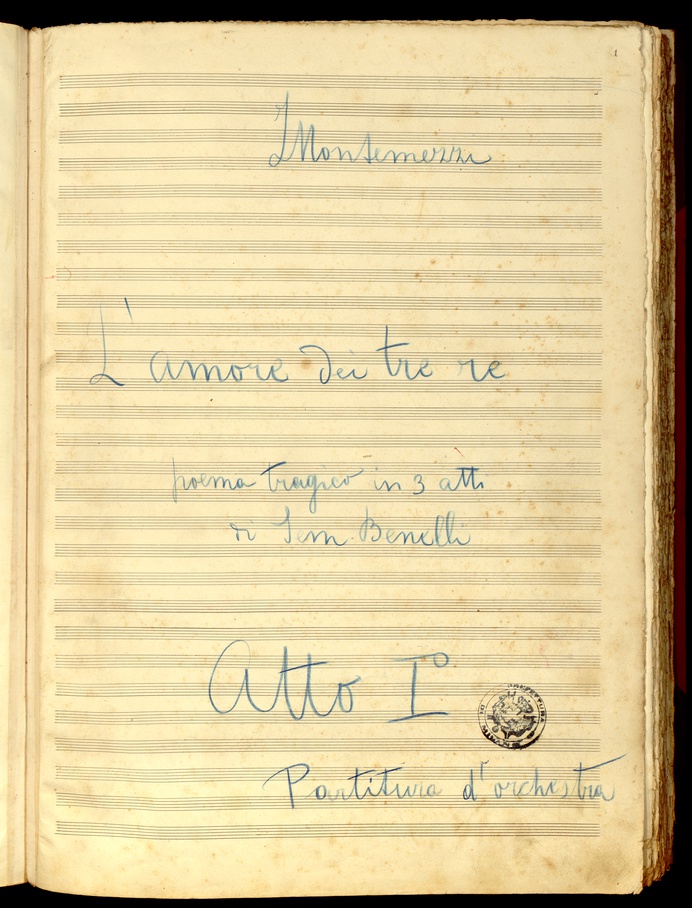 1
IMontemezzi
L'amore dei tre re
poema tragico in 3 atti
di Sem Benelli
Atto I°
PREFETTURA
Partitura d'orchestra